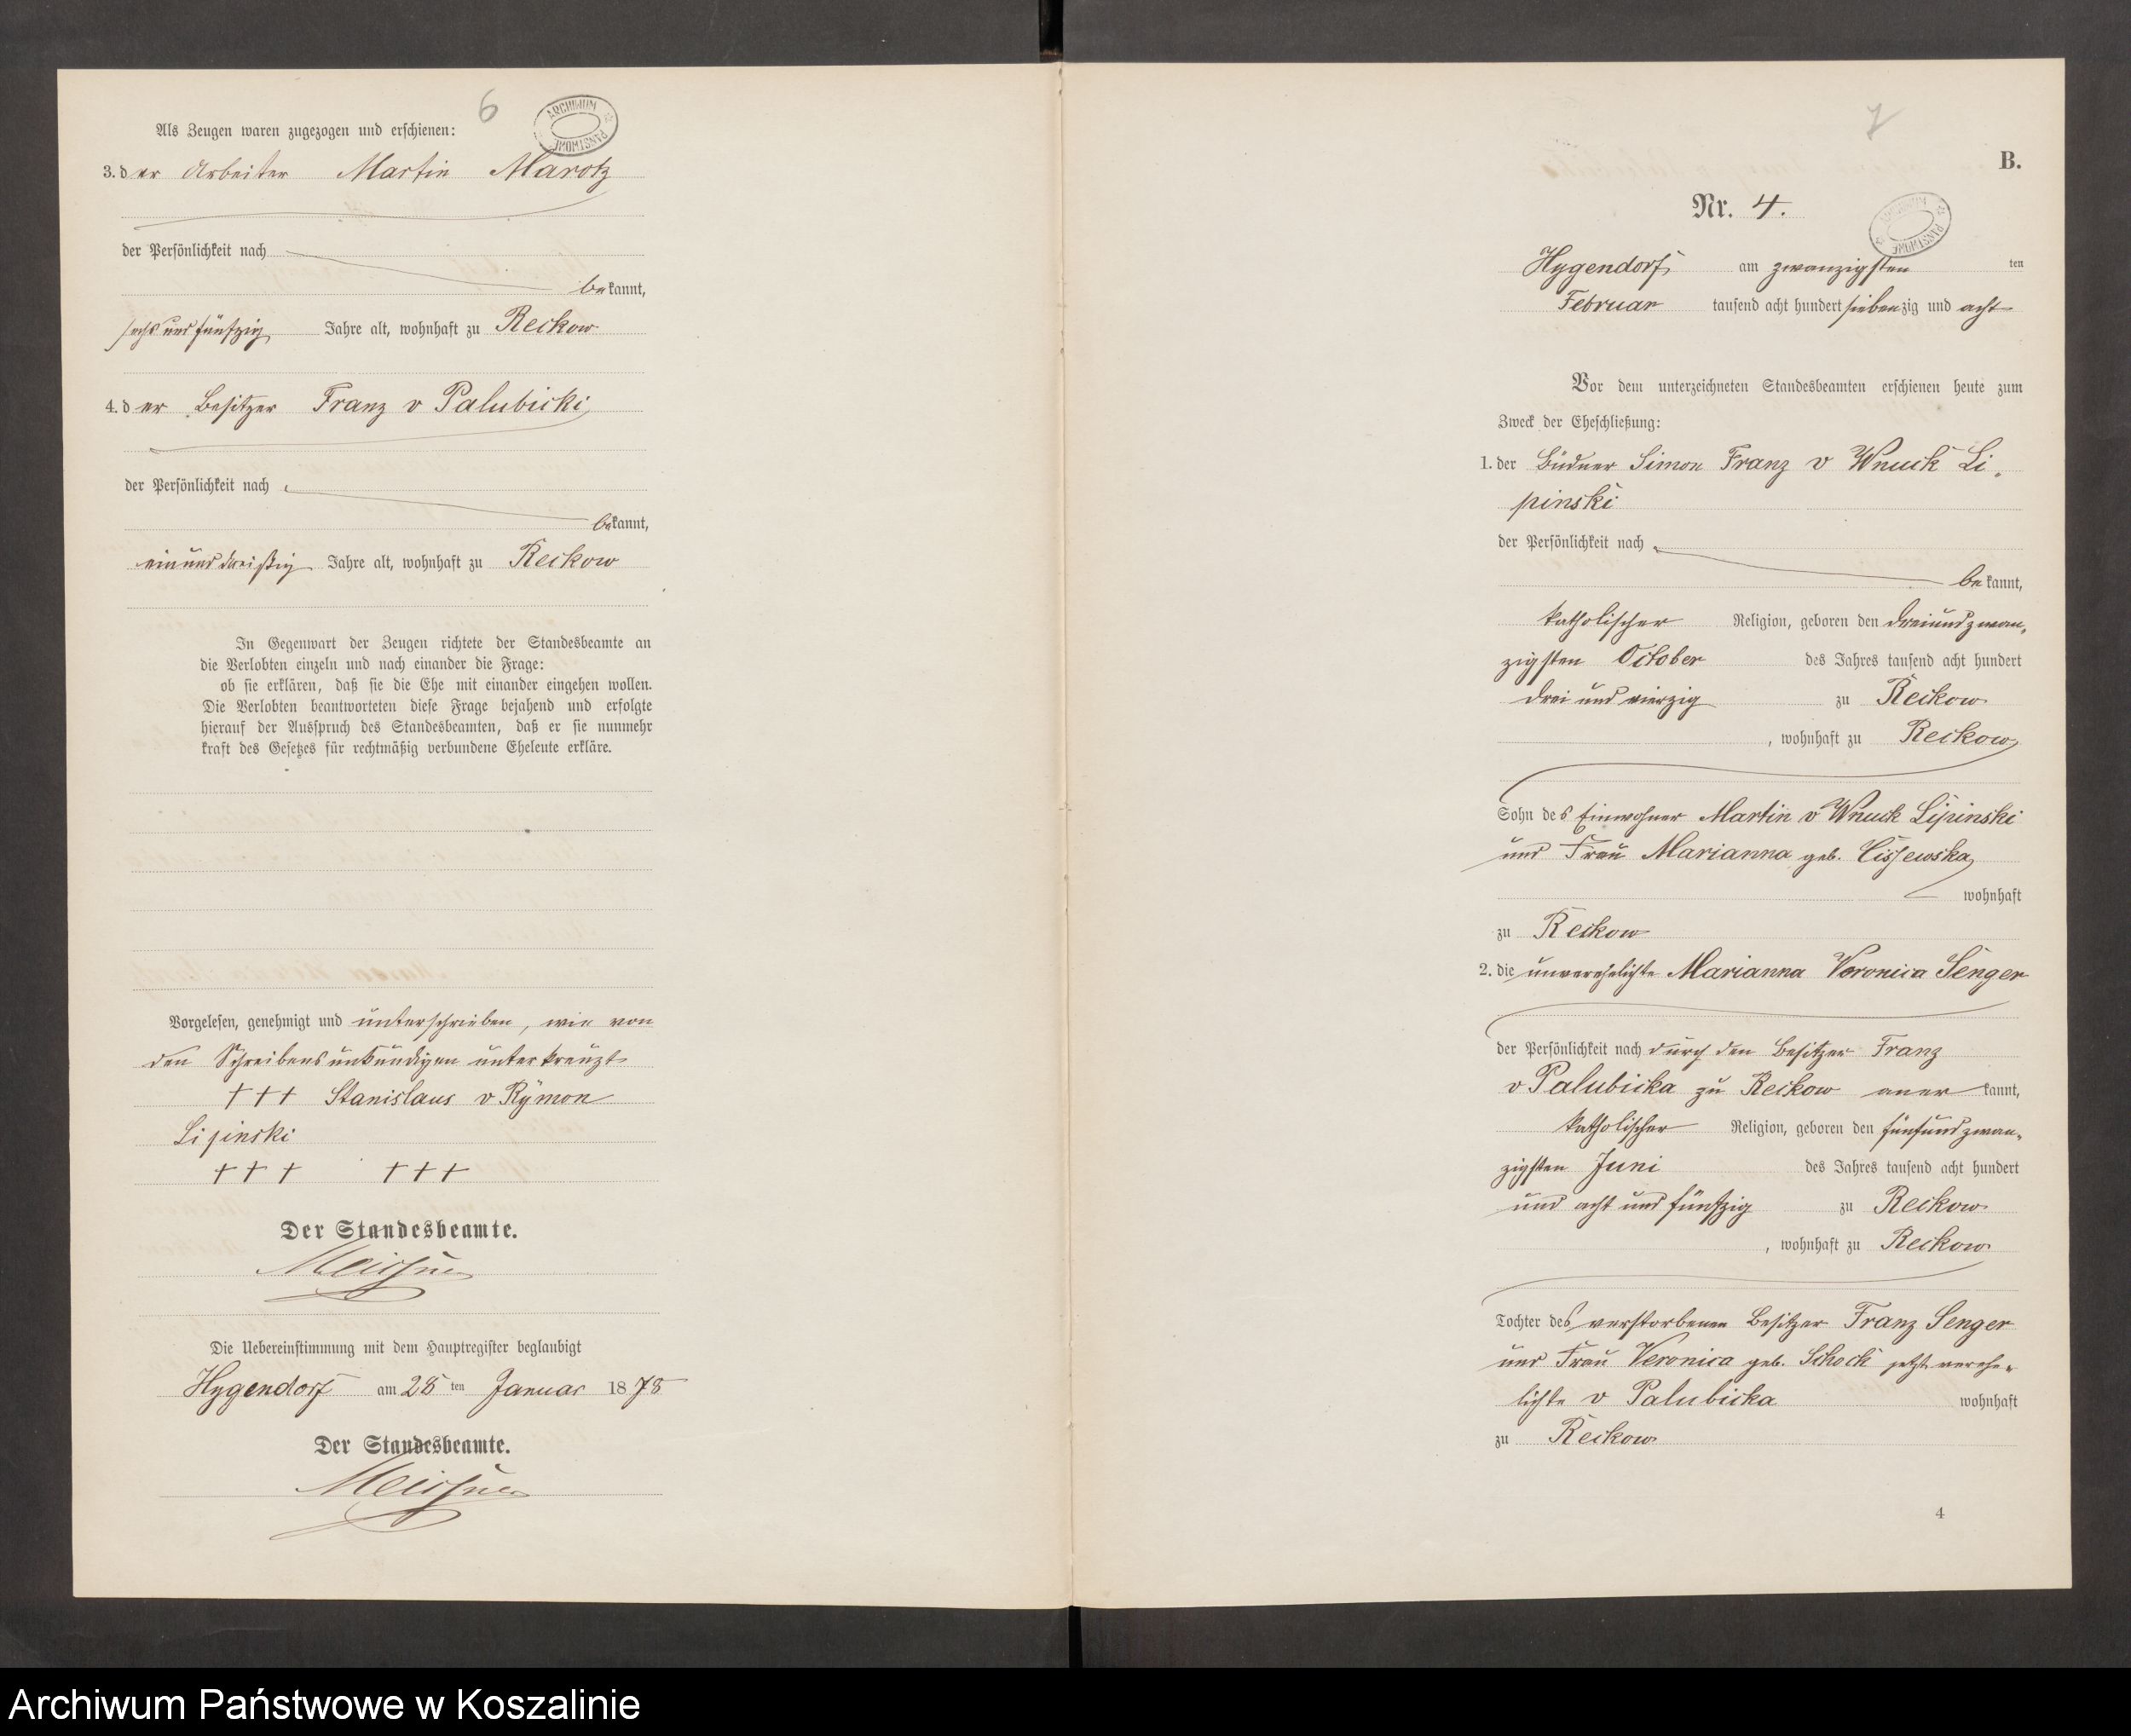 6
ARCHIWUM PAŃSTWOWE
Als Zeugen waren zugezogen und erschienen:
3. der Arbeiter Martin Marotz
der Persönlichkeit nach
bekannt,
sechs und fünfzig Jahre alt, wohnhaft zu Reckow
4. der Besitzer Franz v Palubicki
der Persönlichkeit nach
bekannt,
ein und dreißig Jahre alt, wohnhaft zu Reckow
In Gegenwart der Zeugen richtete der Standesbeamte an
die Verlobten einzeln und nach einander die Frage:
ob sie erklären, daß sie die Ehe mit einander eingehen wollen.
Die Verlobten beantworteten diese Frage bejahend und erfolgte
hierauf der Ausspruch des Standesbeamten, daß er sie nunmehr
kraft des Gesetzes für rechtmäßig verbundene Eheleute erkläre.
Vorgelesen, genehmigt und unterschrieben, wie von
den Schreibensunkündigen unterkreuzt
+++ Stanislaus v Rymon
Lipinski
+++ +++
Der Standesbeamte.
Meissner
Die Uebereinstimmung mit dem Hauptregister beglaubigt
Hygendorf am 28 ten Januar 1878
Der Standesbeamte.
Meissner
7
B.
Nr. 4.
ARCHIWUM PAŃSTWOWE
Hygendorf am zwanzigsten ten
Februar tausend acht hundert siebenzig und acht
Vor dem unterzeichneten Standesbeamten erschienen heute zum
Zweck der Eheschließung:
1. der Büdner Simon Franz v Wnuck Li-
pinski
der Persönlichkeit nach
bekannt,
katholischer Religion, geboren den dreiundzwan-
zigsten October des Jahres tausend acht hundert
drei und vierzig zu Reckow
, wohnhaft zu Reckow
Sohn des Einwohner Martin v Wnuck Lipinski
und Frau Marianna geb. Cissewska
wohnhaft
zu Reckow
2. die unverehelichte Marianna Veronica Senger
der Persönlichkeit nach durch den Besitzer Franz
v Palubicka zu Reckow anerkannt,
katholischer Religion, geboren den fünfundzwan-
zigsten Juni des Jahres tausend acht hundert
und acht und fünfzig zu Reckow
, wohnhaft zu Reckow
Tochter des verstorbenen Besitzer Franz Senger
und Frau Veronica geb. Schock jetzt verehe-
lichte v Palubicka wohnhaft
zu Reckow
4
Archiwum Państwowe w Koszalinie